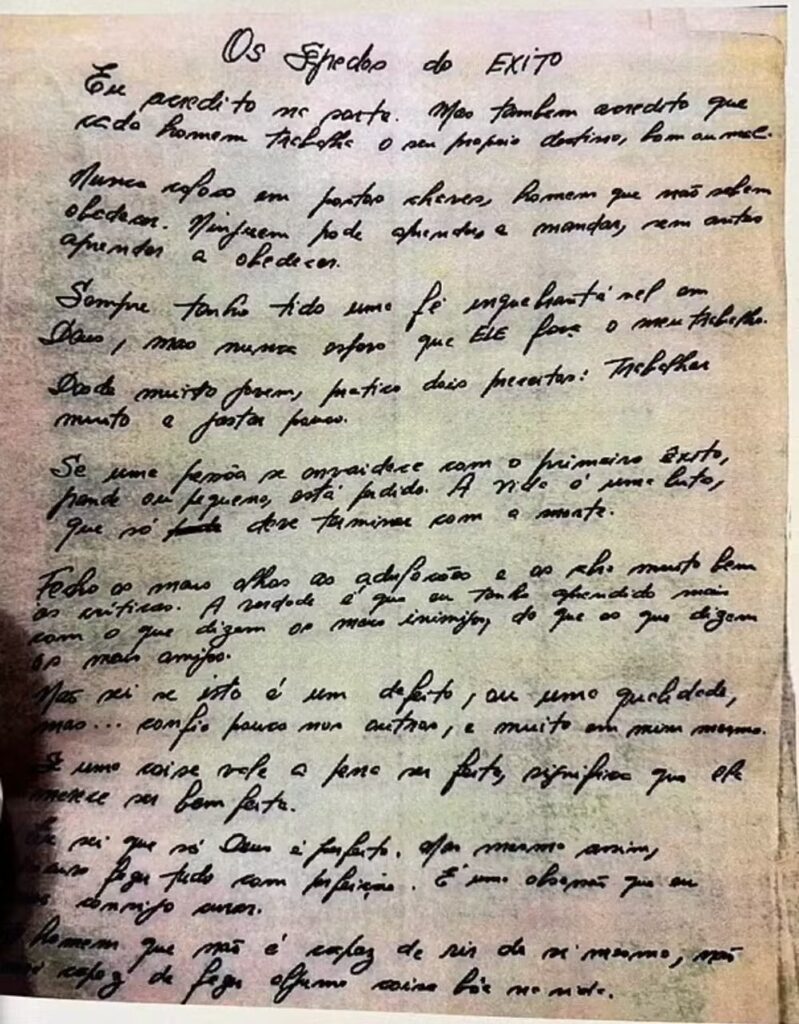 Os Segredos do EXITO
Eu acredito na sorte. Mas tambem acredito que
cada homem trabalha o seu proprio destino, bom ou mal.
Nunca coloco em postos chaves, homem que não sabem
obedecer. Ninguem pode aprender a mandar, sem antes
aprender a obedecer.
Sempre tenho tido uma fé inquebrantável em
Deus, mas nunca espero que ELE faça o meu trabalho.
Desde muito jovem, pratico dois preceitos: Trabalhar
muito e gastar pouco.
Se uma pessôa se envaidece com o primeiro Exito,
grande ou pequeno, está perdido. A vida é uma luta,
que só deve terminar com a morte.
Fecho os meus olhos as adulações e os abro muito bem
as criticas. A verdade é que eu tenho aprendido mais
com o que dizem os meus inimigos, do que os que dizem
os meus amigos.
Não sei se isto é um defeito, ou uma qualidade,
mas... confio pouco nos outros, e muito em mim mesmo.
Se uma coisa vale a pena ser feita, significa que ela
merece ser bem feita.
Eu sei que só Deus é perfeito. Mas mesmo assim,
fazer tudo com perfeição. É uma obsessão que eu
consigo curar.
homem que não é capaz de rir de si mesmo, não
capaz de fazer alguma coisa bôa na vida.